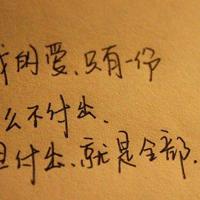 我的爱,只有一份
么不付出,
旦付出,就是全部.